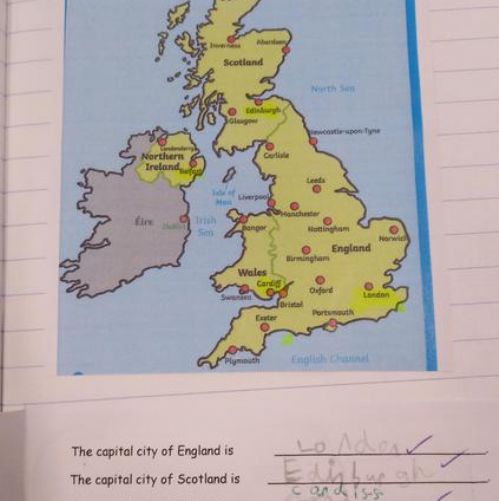 Inverness
Aberdeen
Scotland
North Sea
Edinburgh
Glasgow
Newcastle-upon-Tyne
Londonderry
Northern
Ireland
Belfast
Carlisle
Leeds
Isle of
Man
Liverpool
Manchester
Éire
Dublin
Irish
Sea
Bangor
Nottingham
Norwich
England
Birmingham
Wales
Cardiff
Swansea
Oxford
London
Bristol
Portsmouth
Exeter
Plymouth
English Channel
The capital city of England is London
The capital city of Scotland is Edinburgh